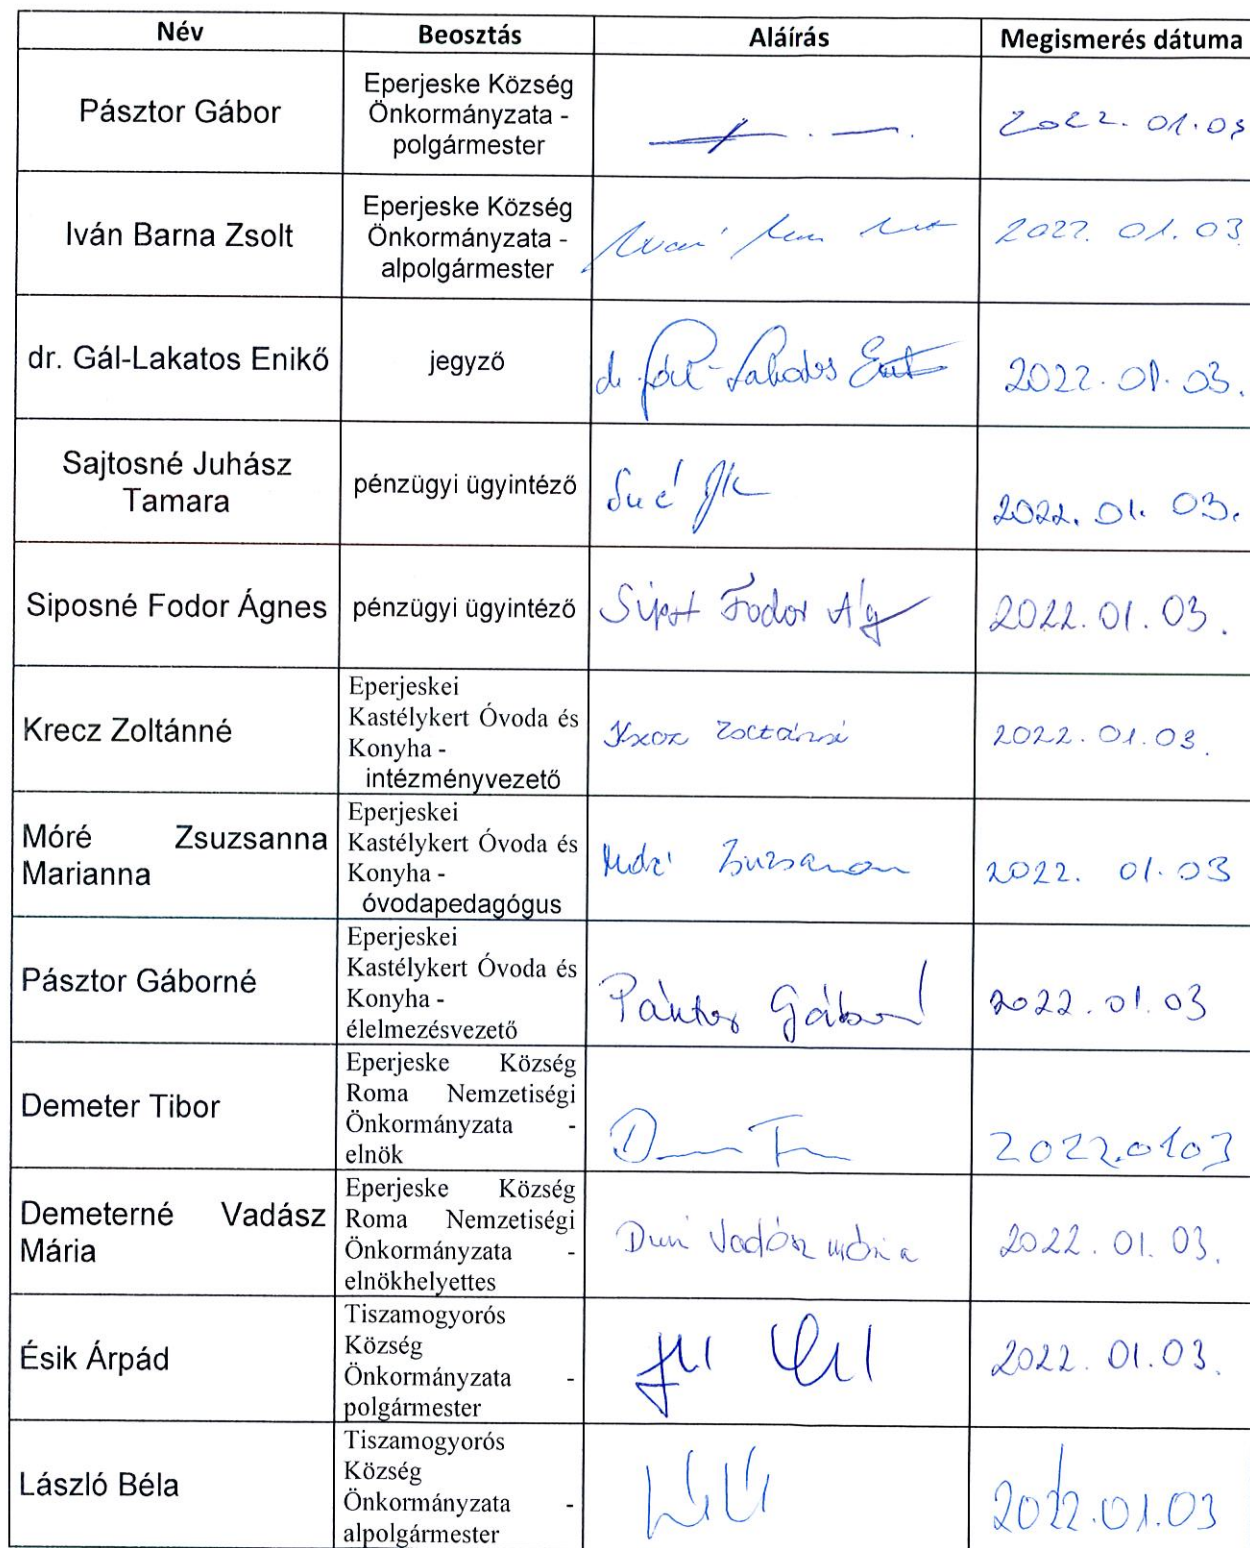 Név Beosztás Aláírás Megismerés dátuma
Pásztor Gábor
Eperjeske Község
Önkormányzata -
polgármester
2022. 01.03
Iván Barna Zsolt
Eperjeske Község
Önkormányzata -
alpolgármester
2022. 01.03
dr. Gál-Lakatos Enikő
jegyző
dr. Gál-Lakatos
2022. 01. 03.
Sajtosné Juhász
Tamara
pénzügyi ügyintéző
2022. 01. 03.
Siposné Fodor Ágnes
pénzügyi ügyintéző
Fodor Ág
2022. 01. 03.
Krecz Zoltánné
Eperjeskei
Kastélykert Óvoda és
Konyha -
intézményvezető
Krecz Zoltánné
2022. 01. 03.
Móré Zsuzsanna
Marianna
Eperjeskei
Kastélykert Óvoda és
Konyha -
óvodapedagógus
Móré Zsuzsanna
2022. 01. 03
Pásztor Gáborné
Eperjeskei
Kastélykert Óvoda és
Konyha -
élelmezésvezető
Pásztor Gáborné
2022. 01. 03
Demeter Tibor
Eperjeske Község
Roma Nemzetiségi
Önkormányzata -
elnök
2022.0103
Demeterné Vadász
Mária
Eperjeske Község
Roma Nemzetiségi
Önkormányzata -
elnökhelyettes
Vadász Mária
2022. 01. 03.
Ésik Árpád
Tiszamogyorós
Község
Önkormányzata -
polgármester
2022. 01. 03.
László Béla
Tiszamogyorós
Község
Önkormányzata -
alpolgármester
2022.01.03